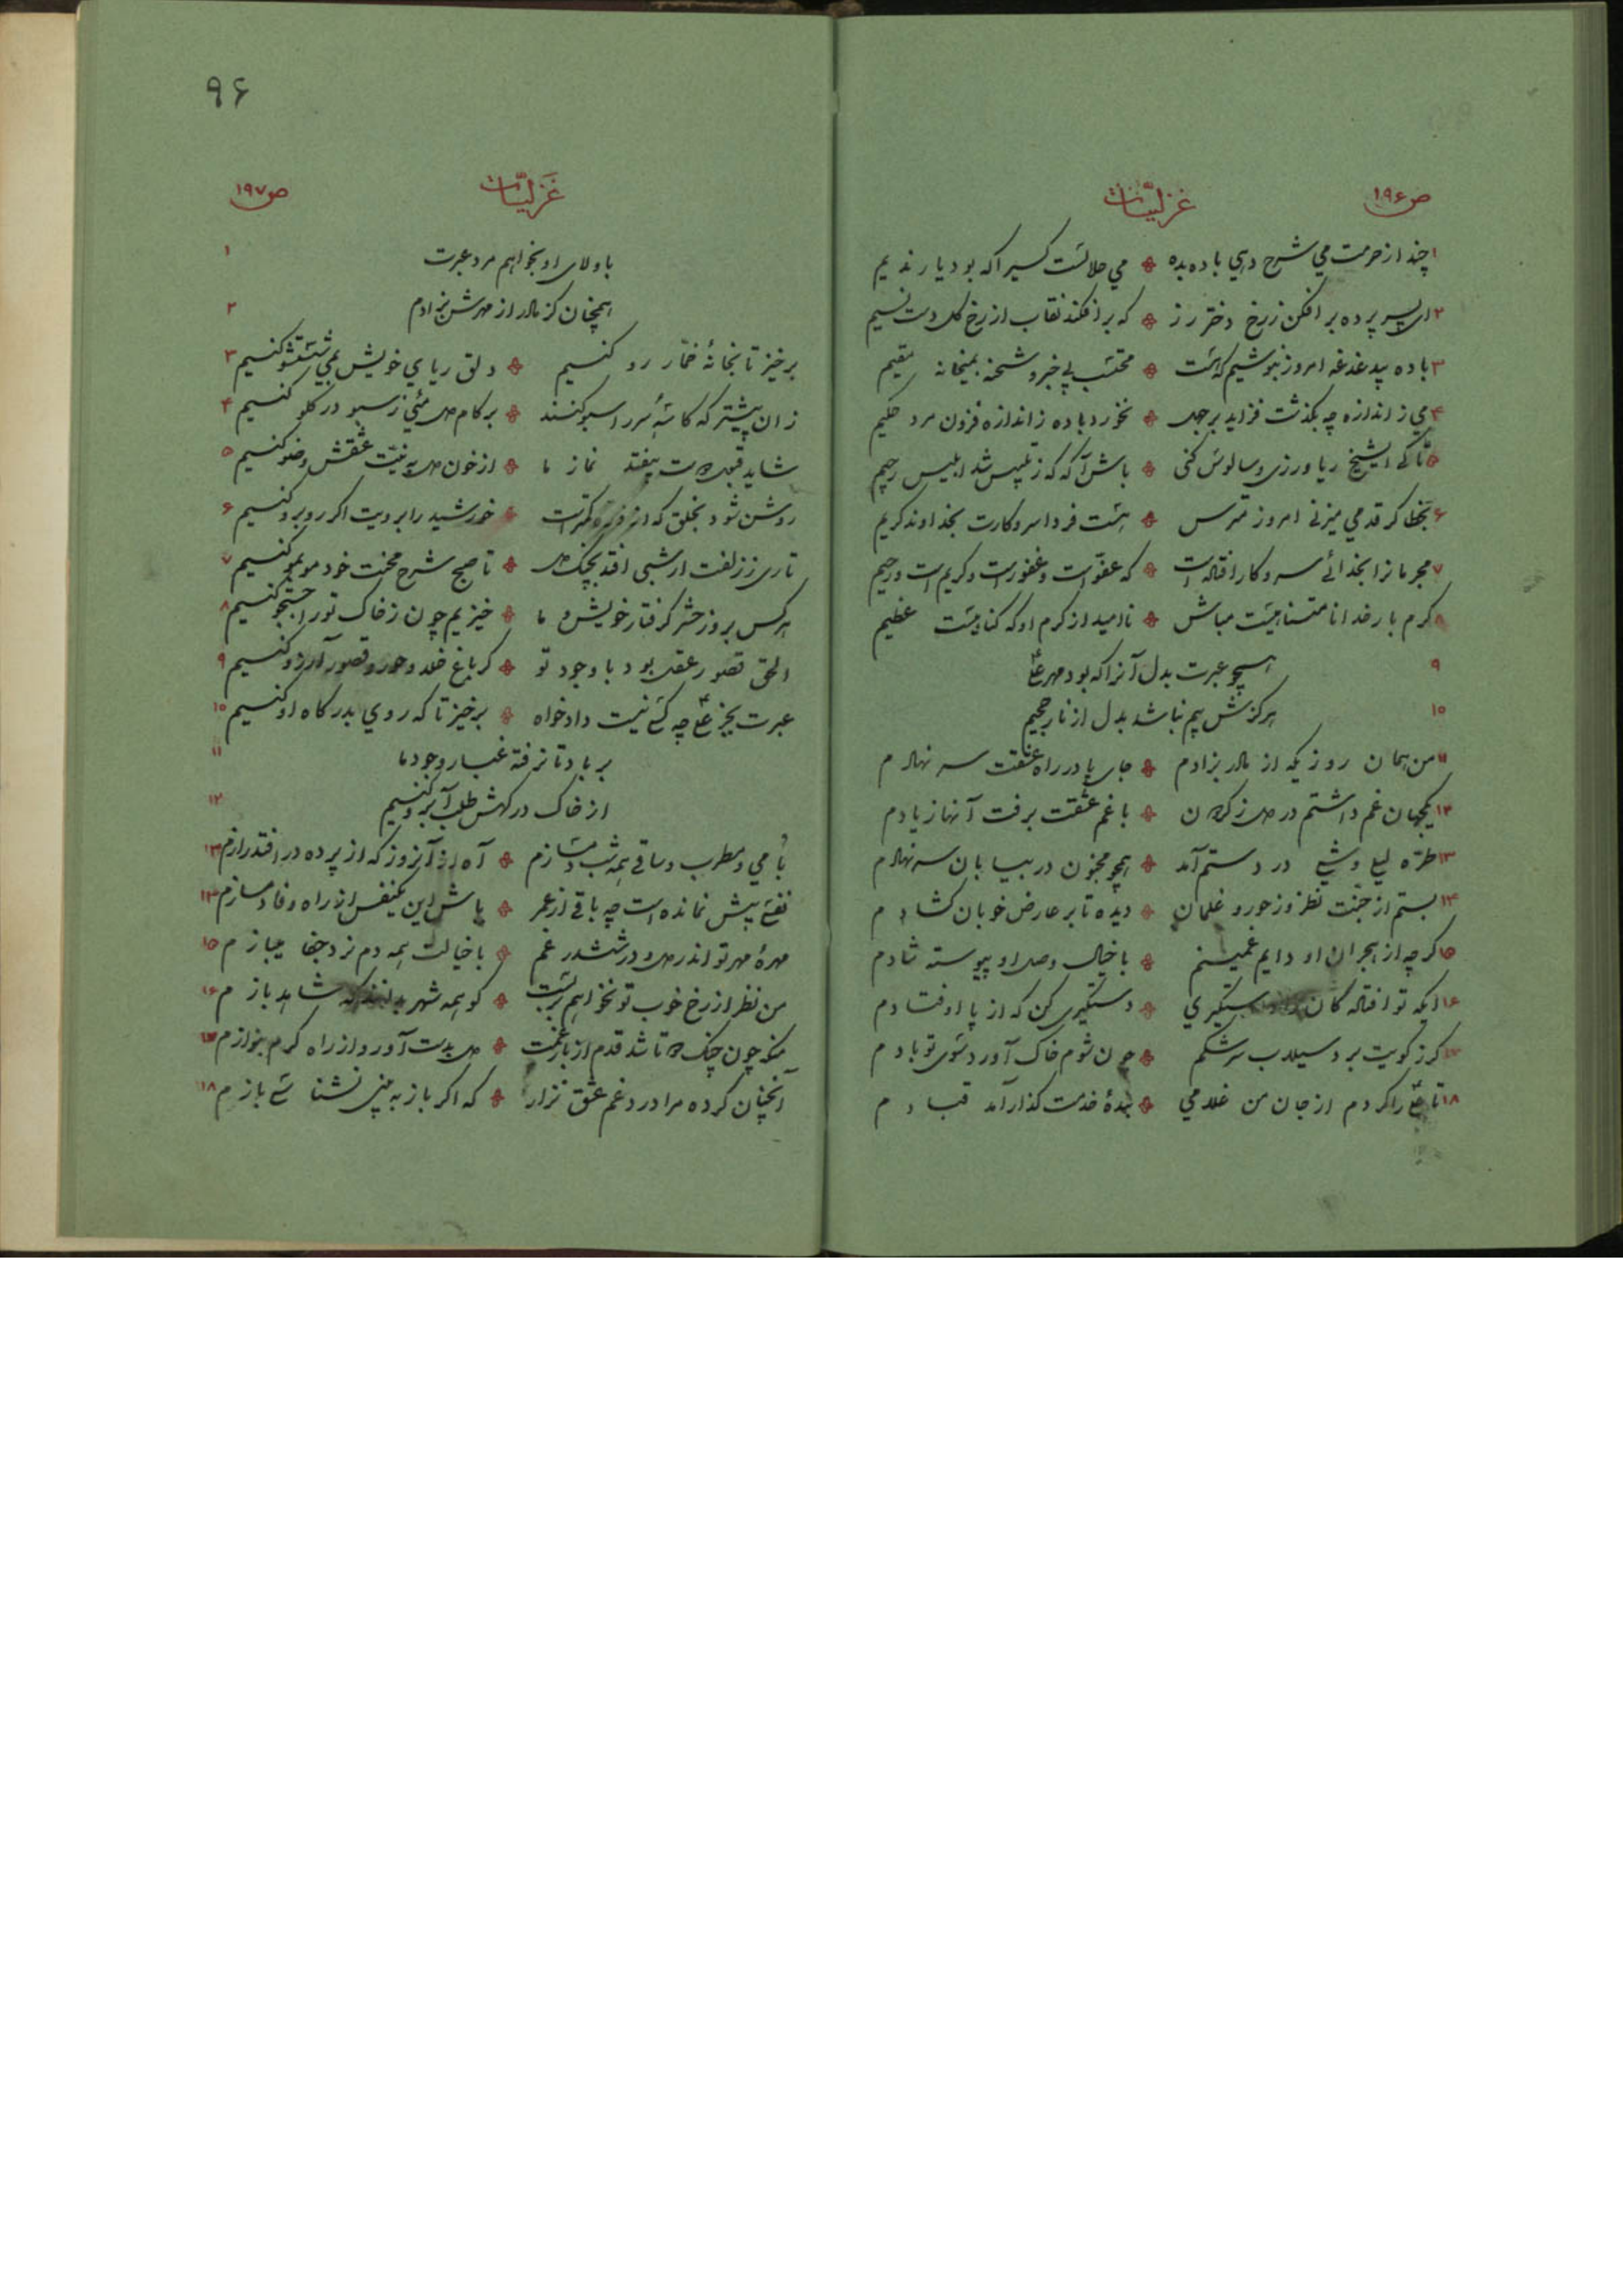 ص۱۹۶ غزلیّات
۱ چند از حرمت می شرح دهی باده بده ❖ می حلالست کسیرا که بود یار ندیم
۲ ای پسر پرده برافکن ز رخ دختر رز ❖ که برافکند نقاب از رخ گل دست نسیم
۳ باده بیدغدغه امروز بنوشیم که هست ❖ محتسب بیخبر و شحنه بمیخانه مقیم
۴ می ز اندازه چه بگذشت فزاید بر جهل ❖ نخورد باده ز اندازه فزون مرد حکیم
۵ تا کی ایشیخ ریا ورزی و سالوس کنی ❖ باش آگه که ز تلبیس شد ابلیس رجیم
۶ بخطا گر قدمی میزنی امروز مترس ❖ هست فردا سر و کارت بخداوند کریم
۷ مجرمانرا بخدائی سر و کار افتاده است ❖ که عفوّ است و غفور است و کریم است و رحیم
۸ کرم بار خدا نامتناهیست مباش ❖ ناامید از کرم او که گناهیست عظیم
۹ همچو عبرت بدل آنرا که بود مهر علی
۱۰ هرگزش بیم نباشد بدل از نار جحیم
۱۱ من همان روزیکه از مادر بزادم ❖ جای پا در راه عشقت سر نهادم
۱۲ یکجهان غم داشتم در دل ز گردون ❖ با غم عشقت برفت آنها ز یادم
۱۳ طرّه لیلی وشی در دستم آمد ❖ همچو مجنون در بیابان سر نهادم
۱۴ بستم از جنّت نظر وز حور و غلمان ❖ دیده تا بر عارض خوبان گشادم
۱۵ گرچه از هجران او دایم غمینم ❖ با خیال وصل او پیوسته شادم
۱۶ ایکه تو افتادگان را دستگیری ❖ دستگیری کن که از پا اوفتادم
۱۷ گر ز کویت برد سیلاب سرشکم ❖ چون شوم خاک آورد سوی تو بادم
۱۸ تا علی را کردم از جان من غلامی ❖ بندهٔ خدمت گذار آمد قبادم
۹۶
غزلیّات ص۱۹۷
۱ با ولای او بخواهم مرد عبرت
۲ همچنان کز مادر از مهرش بزادم
۳ برخیز تا بخانهٔ خمّار رو کنیم ❖ دلق ریای خویش بمی شستشو کنیم
۴ زان پیشتر که کاسهٔ سر را سبو کنند ❖ بر کام دل مئی ز سبو در گلو کنیم
۵ شاید قبول دوست بیفتد نماز ما ❖ از خون دل به نیّت عشقش وضو کنیم
۶ روشن شود بخلق که از ذره کمتر است ❖ خورشید را برویت اگر روبرو کنیم
۷ تاری ز زلفت ار شبی افتد بچنگ دل ❖ تا صبح شرح محنت خود موبمو کنیم
۸ هر کس بروز حشر گرفتار خویش و ما ❖ خیزیم چون ز خاک تو را جستجو کنیم
۹ الحق قصور عقل بود با وجود تو ❖ گر باغ خلد و حور و قصور آرزو کنیم
۱۰ عبرت بجز علی چه کسی نیست دادخواه ❖ برخیز تا که روی بدرگاه او کنیم
۱۱ بر باد تا نرفته غبار وجود ما
۱۲ از خاک درگهش طلب آبرو کنیم
۱۳ با می و مطرب و ساقی همه شب دمسازم ❖ آه از آنروز که از پرده در افتد رازم
۱۴ نفسی بیش نمانده است چه باقی از عمر ❖ باش این یکنفس از راه وفا دمسازم
۱۵ مهرهٔ مهر تو اندر دل و در ششدر غم ❖ با خیالت همه دم نرد جفا میبازم
۱۶ من نظر از رخ خوب تو نخواهم بربست ❖ گو همه شهر بدانند که شاهد بازم
۱۷ منکه چون چنگ دوتا شد قدم از بار غمت ❖ دل بدست آور و از راه کرم بنوازم
۱۸ آنچنان کرده مرا درد غم عشق نزار ❖ که اگر باز به بینی نشناسی بازم